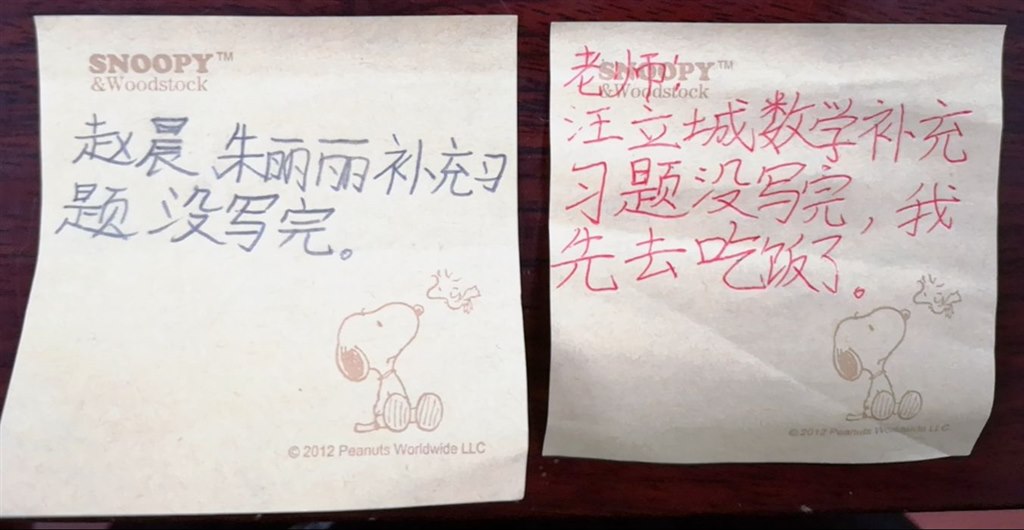 SNOOPY™
&Woodstock
赵晨、朱丽丽补充习
题没写完。
© 2012 Peanuts Worldwide LLC
SNOOPY™
&Woodstock
老师：
汪立城数学补充
习题没写完，我
先去吃饭了。
© 2012 Peanuts Worldwide LLC